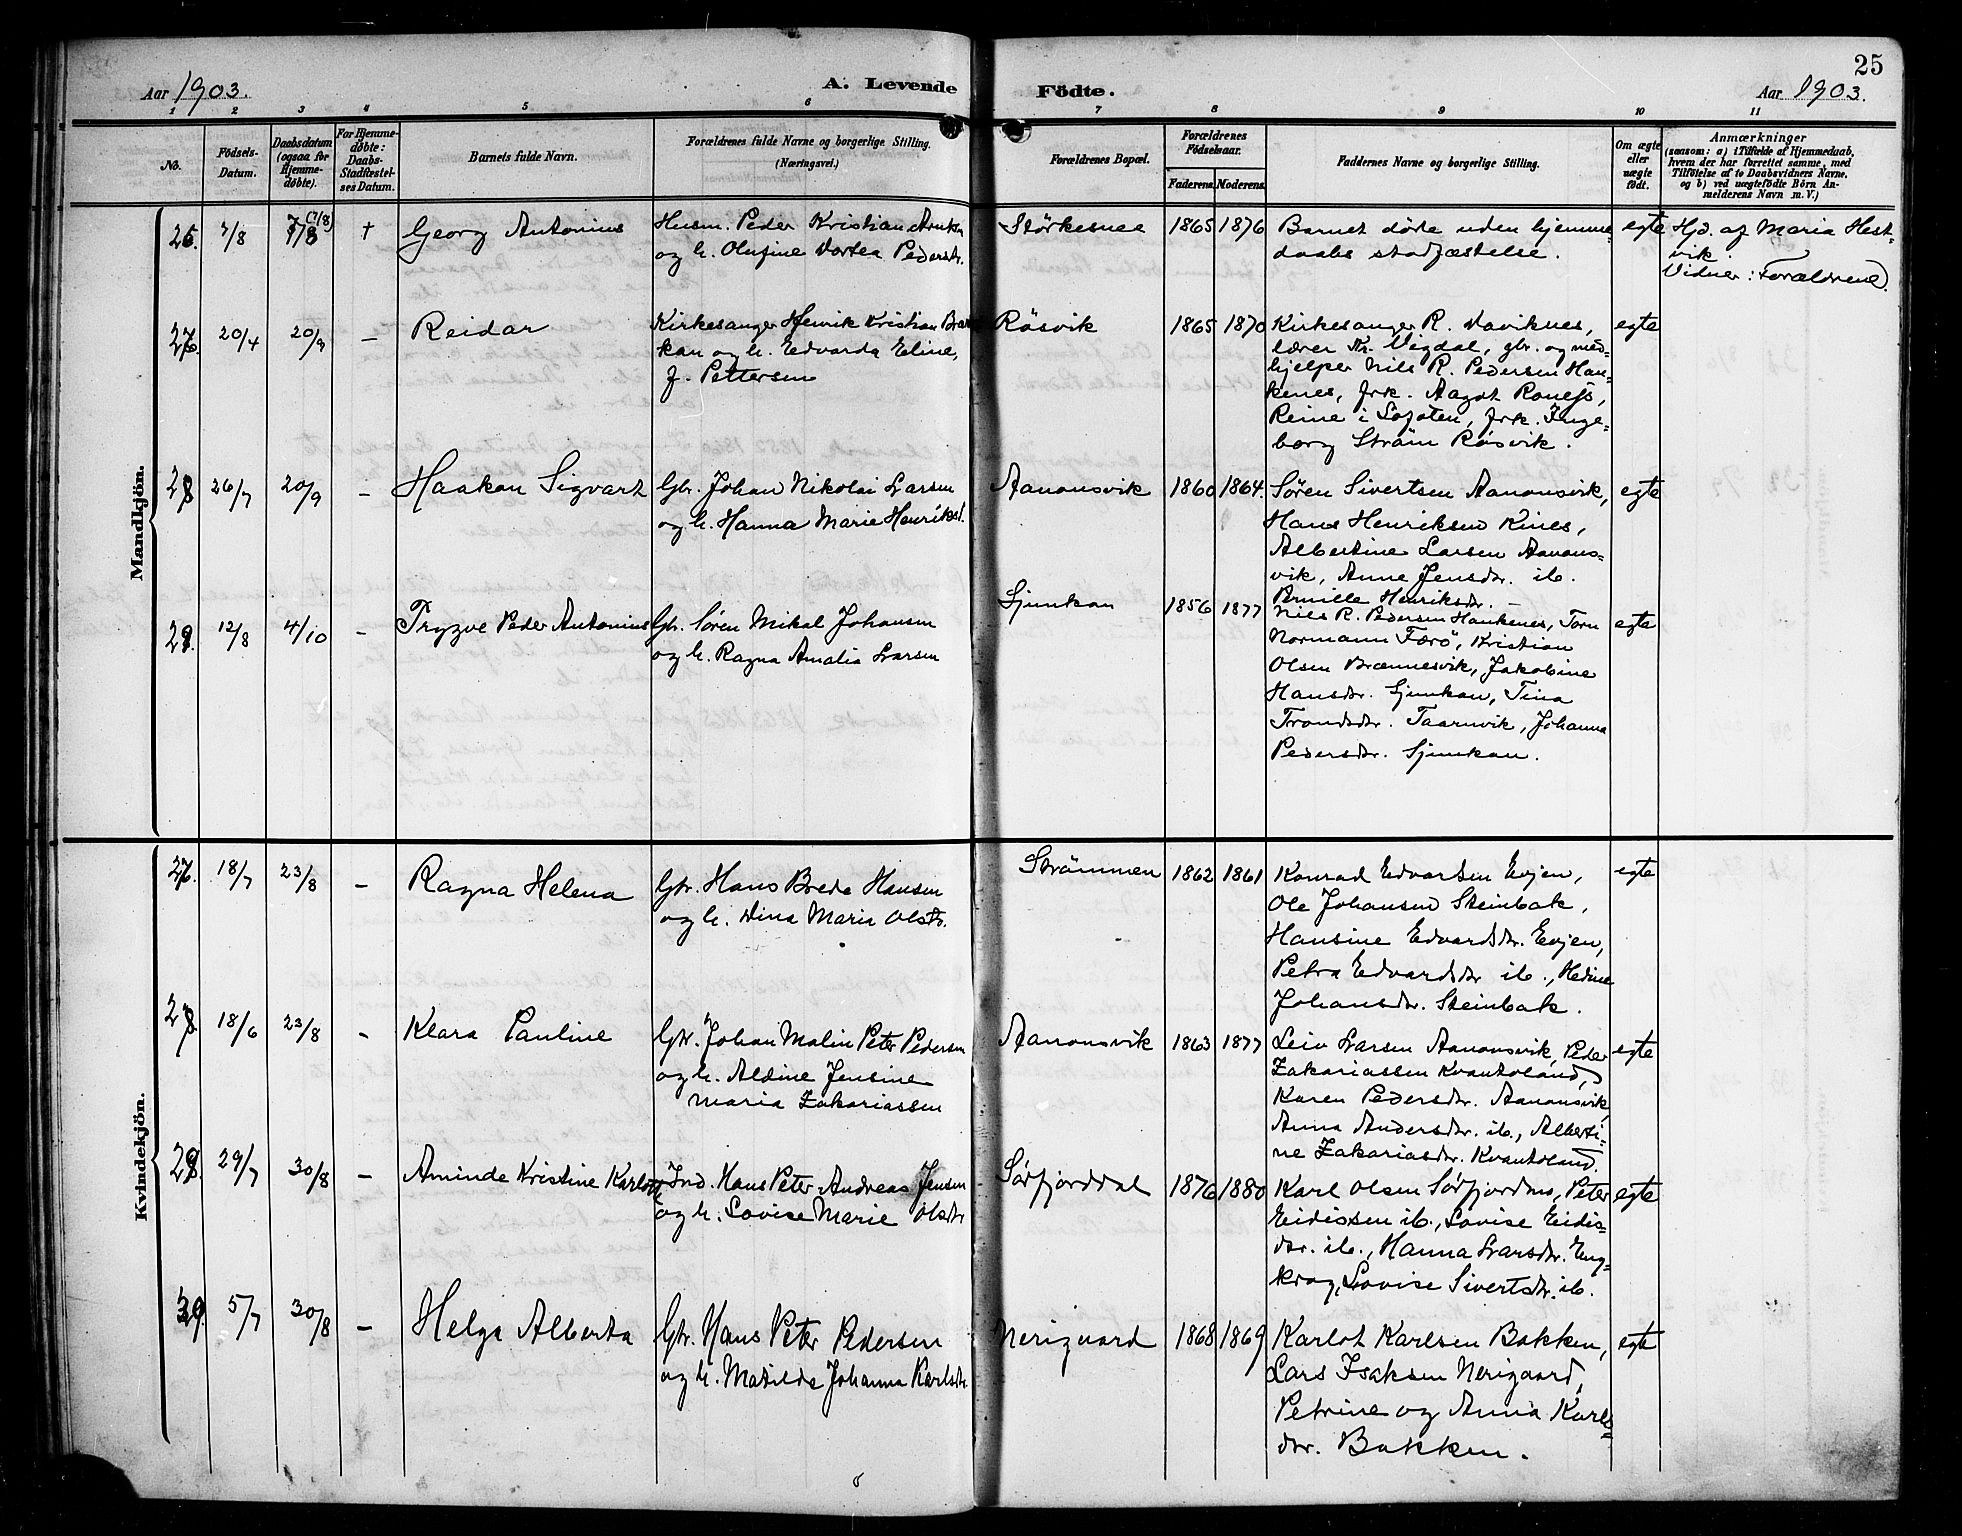 25
Aar 1903.
A. Levende
Födte.
Aar 1903.
1 2 3 4 5 6 7 8 9 10 11
No.
Födsels-
Datum.
Daabsdatum
(ogsaa for
Hjemme-
døbte).
For Hjemme-
døbte:
Daabs-
Stadfæstel-
ses Datum.
Barnets fulde Navn.
Forældrenes fulde Navne og borgerlige Stilling.
(Næringsvei.)
Forældrenes Bopæl.
Forældrenes
Födselsaar.
Faderens. Moderens.
Faddernes Navne og borgerlige Stilling.
Om ægte
eller
uægte
født.
Anmærkninger
(saasom: a) i Tilfælde af Hjemmedaab,
hvem der har forrettet samme, med
Tilföielse af to Daabsvidners Navne.
og b) ved uægtefödte Börn An-
melderens Navn m. V.)
Mandkjön.
26. 7/8 7/8 (7/8) + Georg Antonius
Husm. Peder Kristian
og h. Olufine Dortea Pedersdr.
Störkesnes 1865 1876
Barnet døde uden hjemme-
daabs stadfæstelse.
egte
Hjd. af Maria Hest-
vik.
Vidner: Forældrene.
27. 20/4 20/9 – Reidar
Kirkesanger Henrik Kristian Brat-
kan og h. Edvarda Eline,
f. Pettersen
Røsvik 1865 1870
Kirkesanger R. Daviknes,
lærer Kr. Vegdal, gbr. og med-
hjelper Nils R. Pedersen Hau-
kenes, frk. Aagot
Reine i Lofoten, frk. Inge-
borg Strøm Røsvik.
egte
28 26/7 20/9 – Haakon Sigvart
Gbr. Johan Nikolai Larsen
og h. Hanna Marie Henriksd.
Aanonsvik 1860 1864.
Søren Sivertsen Aanonsvik,
Hans Henriksen Kines,
Albertine Larsen Aanons-
vik, Anne Jensdr. ib.
Pernille Henriksdr. –
egte
29. 12/8 4/10 – Trygve Peder Antonius
Gbr. Søren Mikal Johansen
og h. Ragna Amalia Larsen
Sjunkan 1856 1877
Nils R. Pedersen Haukenes, Torn
Normann Færö, Kristian
Olsen Brænnesvik, Jakobine
Hansdr. Sjunkan, Tina
Trondsdr. Taarnvik, Johanna
Pedersdr. Sjunkan.
egte
Kvindekjön.
27. 18/7 23/8 – Ragna Helena
Gbr. Hans Breda Hansen
og h. Dina Maria Olsdr.
Strömmen 1862 1861
Konrad Edvardsen Evjen,
Ole Johansen Steinbak,
Hansine Edvardsdr. Evjen,
Petra Edvardsdr ib., Hedine
Johansdr. Steinbak.
egte
28 18/6 23/8 – Klara Pauline
Gbr. Johan Malin Peter Pedersen
og h. Aldine Jensine
Maria Zakariassen
Aanonsvik 1863 1877
Leiv Larsen Aanonsvik, Peder
Zakariassen Kvantoland,
Karen Pedersdr. Aanonsvik
Anna Andersdr. ib., Alberti-
ne Zakariasdr. Kvantoland.
egte
29. 29/7 30/8 – Aminde Kristine Karlotte
Ind. Hans Peter Andreas Jensen
og h. Lovise Marie Olsdr
Sørfjorddal 1876 1880
Karl Olsen Sørfjordmo, Peter
Eidissen ib., Lovise Eidis-
dr. ib., Hanna Larsdr. Eng-
krog, Lovise Sivertsdr. ib.
egte
30. 5/7 30/8 – Helga Alberta
Gbr. Hans Peter Pedersen
og h. Matilde Johanna Karlsdr.
Nerigaard 1868 1869
Karlot Karlsen Bakken,
Lars Isaksen Nerigaard,
Petrine og Anna Karls-
dr. Bakken.
egte